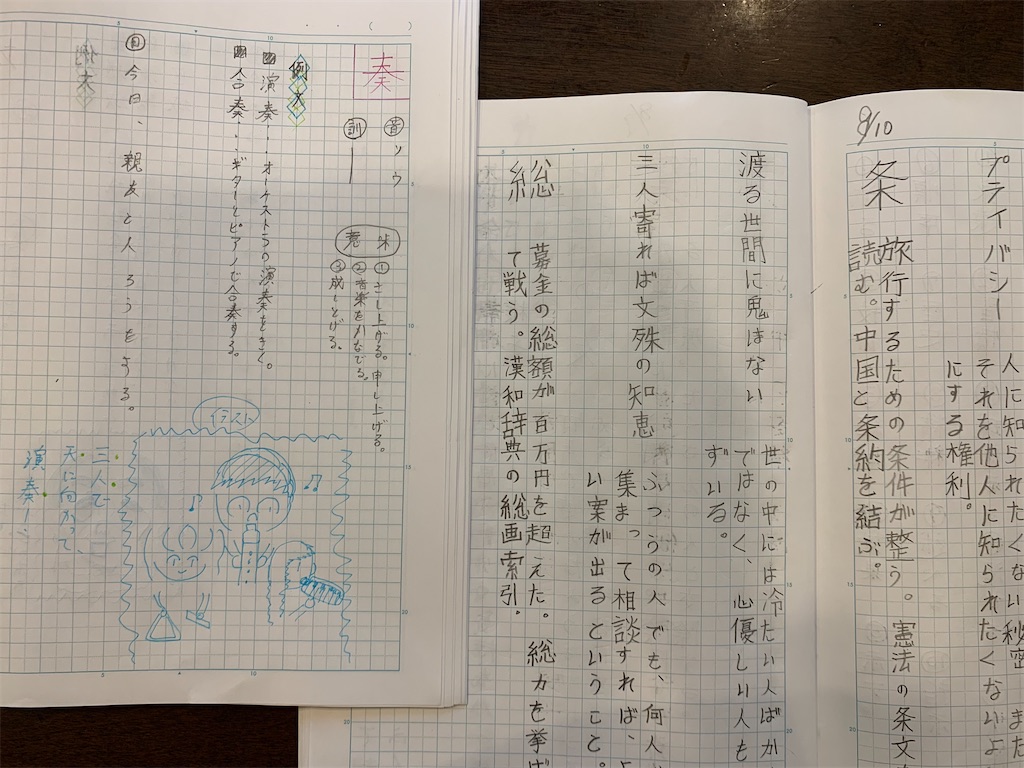 奏
音 ソウ
訓 ―
意味
①さし上げる。申し上げる。
②音楽をかなでる。
③成しとげる。
例文
演奏…オーケストラの演奏をきく。
合奏…ギターとピアノで合奏する。
今日、親友と
イラスト
三人で
天に向かって、
演奏
9/10
プライバシー
人に知られたくない秘密 また
それを他人に知られたくないよ
にする権利。
条
旅行するための条件が整う。憲法の条文
読む。中国と条約を結ぶ。
渡る世間に鬼はない
世の中には冷たい人ばか
ではなく、心優しい人も
ずいる。
三人寄れば文殊の知恵
ふつうの人でも、何人
集まって相談すれば、よ
い案が出るということ。
総
募金の総額が百万円を超えた。総力を挙げ
て戦う。漢和辞典の総画索引。